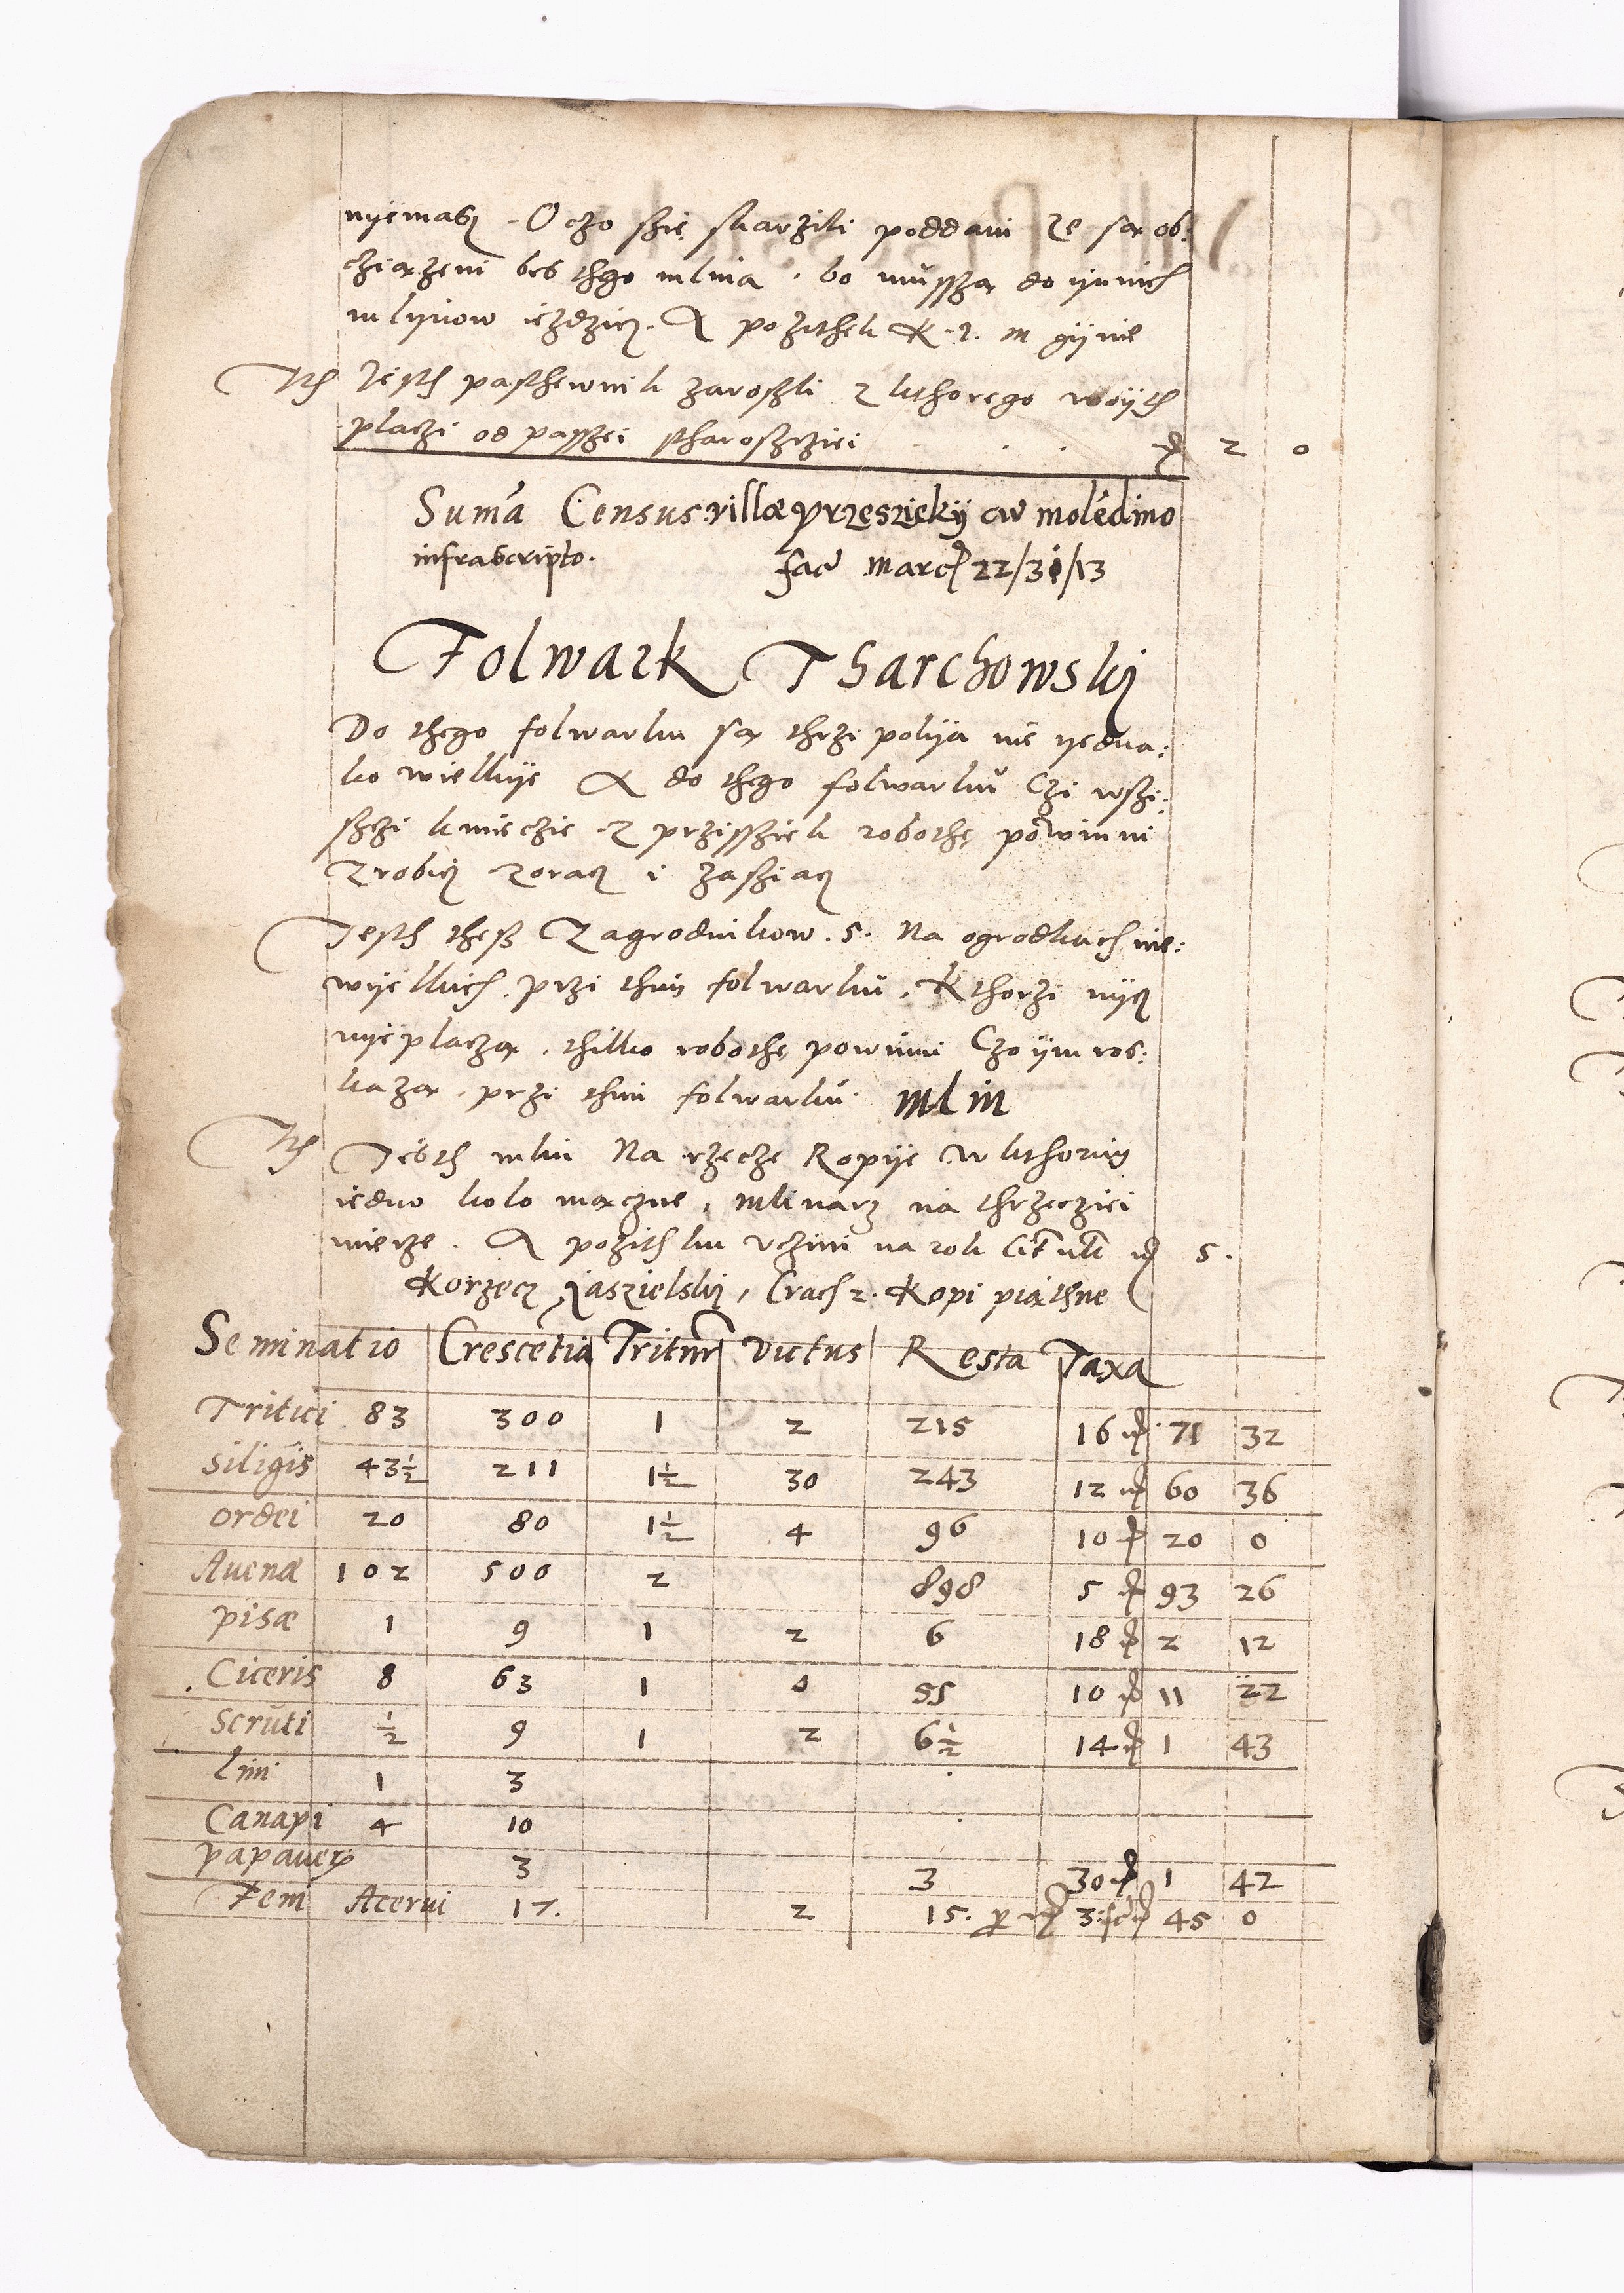 nyemasz. O czo szię skarzili poddani ze są ob:
cziązeni bes thego mlina, bo mussza do ynnich
mlynow iezdzicz. A pozithek K. J. M. gynie
Ith Jesth pasthewnik zaroszli z kthorego woyth
placzi od passzei starosczziei . . mͬ 2 0
Suma Census villæ przeszieky cū moledino
infrascripto. fac marc 22/31/13
Folwark Tharchowski
Do thego folwarku są thrzi polya nie yedna:
ko wielkye A do thego folwarku Czi wszi:
sczi kmieczie z przissziek robothę powinni
zrobicz zoracz i zasziacz
Jesth thesz Zagrodnikow. 5. Na ogrodkach nie:
wyelkich. przi thim folwarku, Kthorzi nycz
nye placzą, thilko robothę powinni Czo ym ros:
kazą, przi thim folwarku. mlin
Ith Jesth mlin Na rzecze Ropye w kthorim
iedno kolo mączne, mlinarz na thrzecziei
mierze. A pozithku Uczini na rok 5.
Korzecz Jaszielski, Crach 2. Kopi piąthne
Seminatio Crescētia Tritur Victus Resta Taxa
Tritici 83 300 1 2 215 16 71 32
siliginis 43½ 211 1½ 30 243 12 60 36
ordei 20 80 1½ 4 96 10 20 0
Avenæ 102 500 2 898 5 93 26
pisæ 1 9 1 2 6 18 2 12
Ciceris 8 63 1 0 55 10 11 22
Scruti ½ 9 1 2 6½ 14 1 43
Lini 1 3
Canapi 4 10
papaver 3 3 30 1 42
Feni Acervi 17. 2 15. 3 45 0